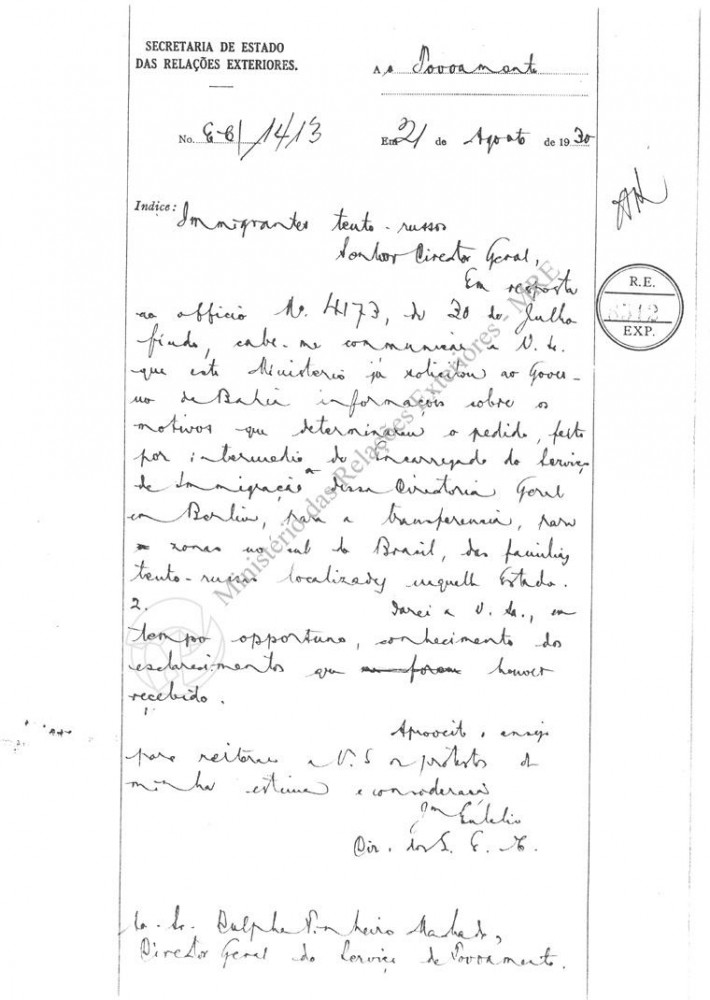 SECRETARIA DE ESTADO
DAS RELAÇÕES EXTERIORES.
Ao Povoamento
No. EC/1413
Em 21 de Agosto de 1930
Indice: Immigrantes teuto-russos
Senhor Director Geral,
Em resposta
ao officio No. 4173, de 30 de Julho
findo, cabe-me communicar a V. S.
que este Ministerio já solicitou ao Gover-
no da Bahia informações sobre os
motivos que determinaram o pedido, feito
por intermedio do Encarregado do Serviço
de Immigração dessa Directoria Geral
em Berlim, para a transferencia, para
zonas no sul do Brasil, das familias
teuto-russas localizadas naquelle Estado.
2. Darei a V. Sa., em
tempo opportuno, conhecimento dos
esclarecimentos que houver
recebido.
Aproveito o ensejo
para reiterar a V. S. os protestos de
minha estima e consideração
Dir. dos S. E. C.
Ao Sr. Dulphe Pinheiro Machado,
Director Geral do Serviço de Povoamento.
R.E.
EXP.
Ministério das Relações Exteriores - MRE